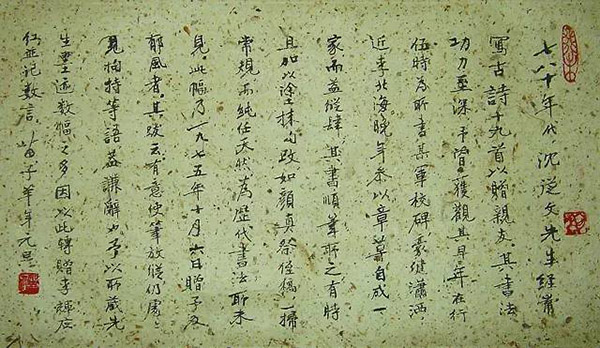 七八十年代沈从文先生经常
写古詩十九首以贈親友其书法
功力至深予曾獲觀其早年在行
伍時為所書某軍校碑豪健瀟洒
近李北海晚年参以章草自成一
家而益縱肆其書順筆所之有時
且加以塗抹勾改如顏真卿祭侄稿一掃
常規而純任天然為歷代書法所未
見此幅乃一九七五年十月六日贈予及
郁風者其跋云有意使筆放縱仍處處
見拘特等語益謙辭也予以所藏先
生墨迹数幅之多因以此轉贈李輝应
红並记数言 苗子羊年元旦